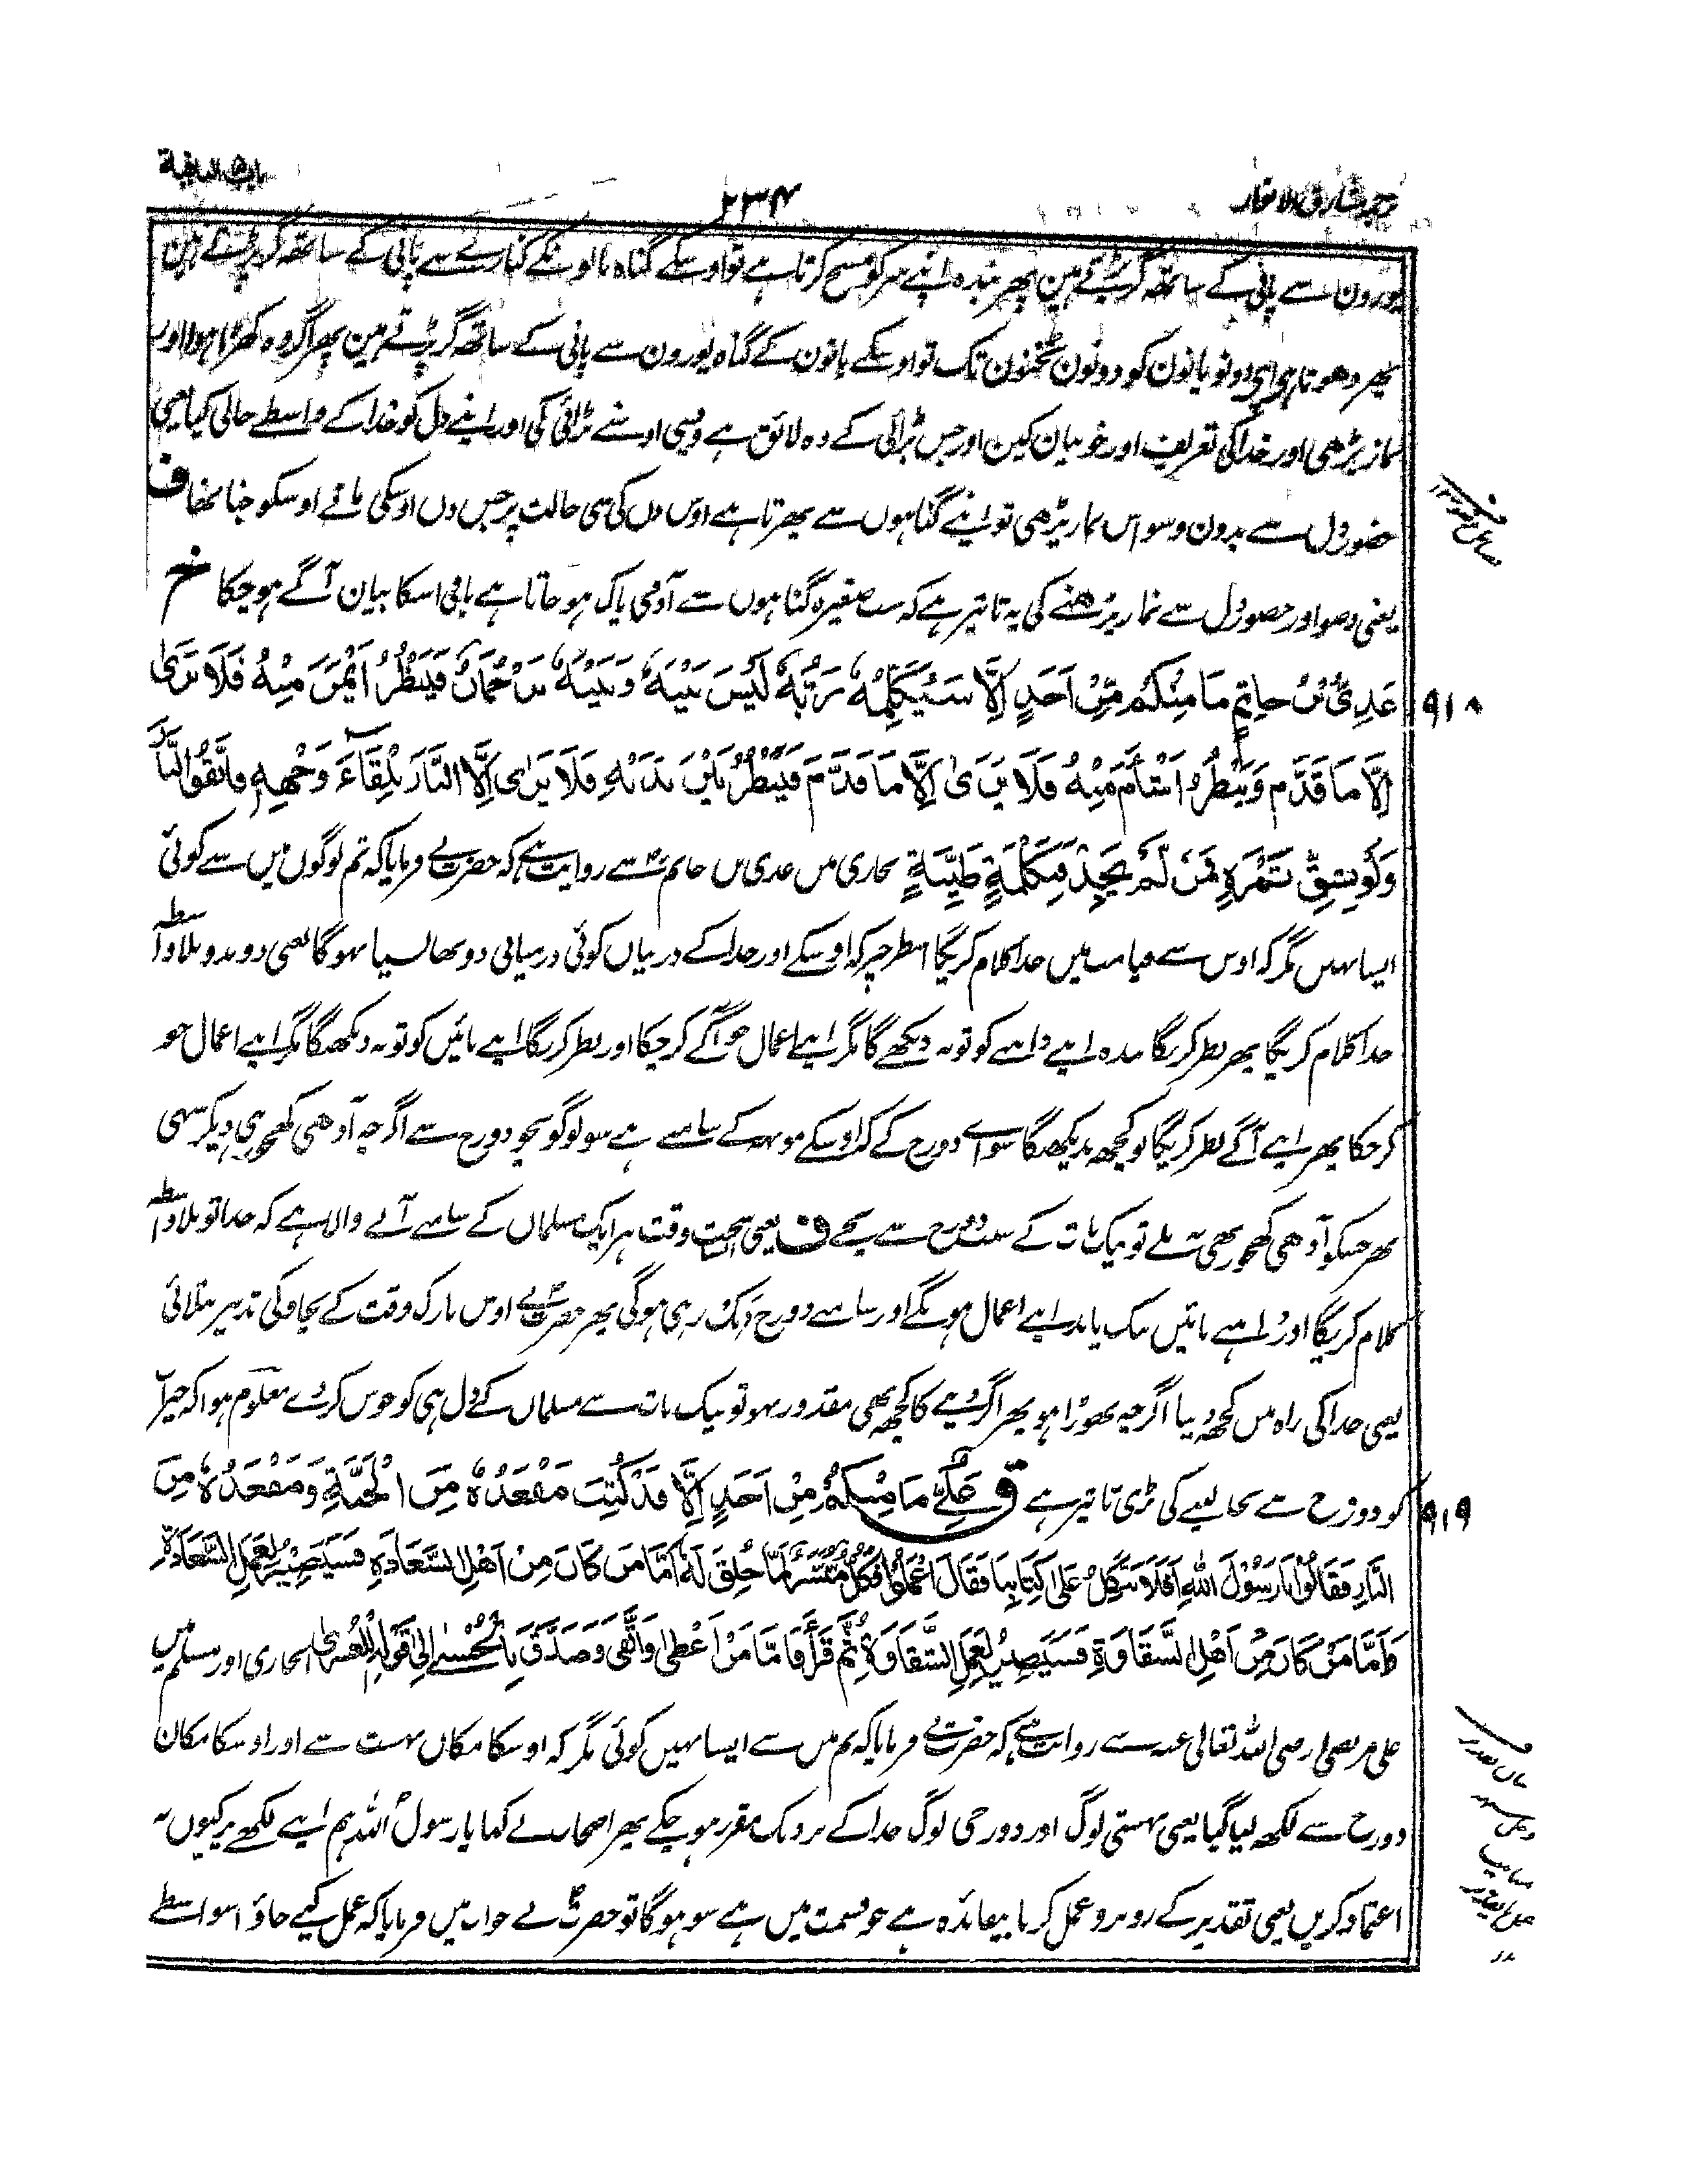 ترجمہ مشارق الانوار
۲۳۴
پورون سے پانی کے ساتھ گر پڑتے ہین پھر بندہ اپنے سر کو مسح کرتا ہے تو اوسکے گناہ بالونکے کنارے سے پانی کے ساتھ گر پڑتے ہین
پھر دھوتا ہی اپنی دونو پانون کو دونون ٹخنون تک تو اوسکے پانون کے گناہ پورون سے پانی کے ساتھ گر پڑتے ہین پھر اگر وہ کھڑا ہوا اور
نماز پڑھی اور خدا کی تعریف اور خوبیان کین اور جس بڑائی کے وہ لائق ہے ویسی اوسنے بڑائی کی اور اپنے دل کو خدا کے واسطے خالی کیا یعنی
حضور دل سے بدون وسواس نماز پڑھی تو اپنے گناہوں سے پھرتا ہے اوس دن کی سی حالت پر جس دن اوسکی مانے اوسکو جنا تھا ف
یعنی وضو اور حضور دل سے نماز پڑھنے کی یہ تاثیر ہے کہ سب صغیرہ گناہوں سے آدمی پاک ہو جاتا ہے باقی اسکا بیان آگے ہو چکا خ
۹۱۸ عَدِىُّ بْنُ حَاتِمٍ مَا مِنْكُمْ مِّنْ اَحَدٍ اِلَّا سَيُكَلِّمُهٗ رَبُّهٗ لَيْسَ بَيْنَهٗ وَبَيْنَهٗ تَرْجُمَانٌ فَيَنْظُرُ اَيْمَنَ مِنْهُ فَلَا يَرٰى
اِلَّا مَا قَدَّمَ وَيَنْظُرُ اَشْأَمَ مِنْهُ فَلَا يَرٰى اِلَّا مَا قَدَّمَ فَيَنْظُرُ بَيْنَ يَدَيْهِ فَلَا يَرٰى اِلَّا النَّارَ تِلْقَآءَ وَجْهِهٖ فَاتَّقُوا النَّارَ
وَلَوْ بِشِقِّ تَمْرَةٍ فَمَنْ لَّمْ يَجِدْ فَبِكَلِمَةٍ طَيِّبَةٍ بخاری میں عدی بن حاتم سے روایت ہے کہ حضرت نے فرمایا کہ تم لوگوں میں سے کوئی
ایسا نہیں مگر کہ اوس سے قیامت میں خدا کلام کریگا اسطرح پر کہ اوسکے اور خدا کے درمیاں کوئی درمیانی دوبھاسیا نہوگا یعنی دوبدو بلاواسطہ
خدا کلام کریگا پھر نظر کریگا بندہ اپنے داہنے کو تو نہ دیکھے گا مگر اپنے اعمال جو آگے کر چکا اور نظر کریگا اپنے بائیں کو تو نہ دیکھیگا مگر اپنے اعمال جو
کر چکا پھر اپنے آگے نظر کریگا تو کچھ نہ دیکھیگا سوائے دوزخ کے کہ اوسکے مونہہ کے سامنے ہے سو لوگو بچو دوزخ سے اگرچہ آدھی کھجور ہی دیکر سہی
پھر جسکو آدھی کھجور بھی نہ ملے تو نیک بات کے سبب دوزخ سے بچے ف یعنی سخت وقت ہر ایک مسلمان کے سامنے آنے والا ہے کہ خدا تو بلاواسطہ
کلام کریگا اور داہنے بائیں نیک یا بد اپنے اعمال ہونگے اور سامنے دوزخ دہک رہی ہوگی پھر حضرت نے اوس نازک وقت کے بچاو کی تدبیر بتلائی
یعنی خدا کی راہ میں کچھ دینا اگرچہ تھوڑا ہو پھر اگر دینے کا کچھ بھی مقدور نہو تو نیک بات سے مسلمان کے دل ہی کو خوش کر دے معلوم ہوا کہ خیرات
۹۱۹ کو دوزخ سے بچا لینے کی بڑی تاثیر ہے ق عَلِىٌّ مَا مِنْكُمْ مِنْ اَحَدٍ اِلَّا قَدْ كُتِبَ مَقْعَدُهٗ مِنَ الْجَنَّةِ وَمَقْعَدُهٗ مِنَ
النَّارِ فَقَالُوْا يَا رَسُوْلَ اللّٰهِ اَفَلَا نَتَّكِلُ عَلٰى كِتَابِنَا فَقَالَ اعْمَلُوْا فَكُلٌّ مُّيَسَّرٌ لِّمَا خُلِقَ لَهٗ اَمَّا مَنْ كَانَ مِنْ اَهْلِ السَّعَادَةِ فَسَيَصِيْرُ لِعَمَلِ السَّعَادَةِ
وَاَمَّا مَنْ كَانَ مِنْ اَهْلِ الشَّقَاوَةِ فَسَيَصِيْرُ لِعَمَلِ الشَّقَاوَةِ ثُمَّ قَرَأَ فَاَمَّا مَنْ اَعْطٰى وَاتَّقٰى وَصَدَّقَ بِالْحُسْنٰى اِلٰى قَوْلِهٖ لِلْعُسْرٰى بخاری اور مسلم میں
علی مرتضی رضی اللہ تعالی عنہ سے روایت ہے کہ حضرت نے فرمایا کہ تم میں سے ایسا نہیں کوئی مگر کہ اوسکا مکاں بہشت سے اور اوسکا مکان
دوزخ سے لکھ لیا گیا یعنی بہشتی لوگ اور دوزخی لوگ خدا کے نزدیک مقرر ہو چکے پھر اصحاب نے کہا یا رسول اللہ ہم اپنے لکھے پر کیوں نہ
اعتماد کریں یعنی تقدیر کے روبرو عمل کرنا بیفائدہ ہے جو قسمت میں ہے سو ہوگا تو حضرت نے جواب میں فرمایا کہ عمل کیے جاؤ اسواسطے